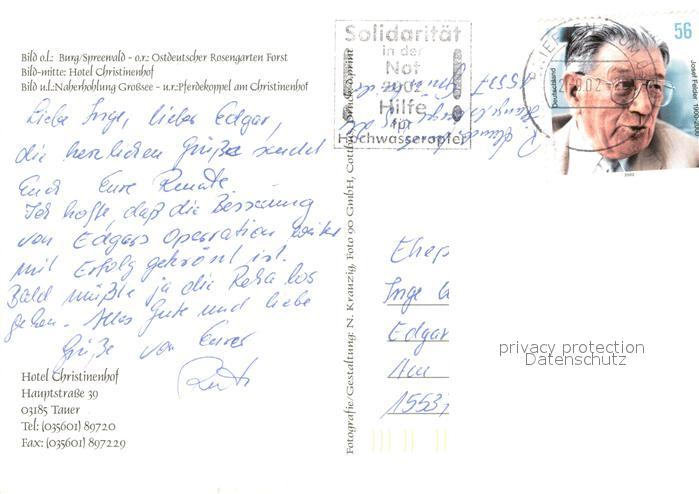 Bild o.l.: Burg/Spreewald - o.r.: Ostdeutscher Rosengarten Forst
Bild-mitte: Hotel Christinenhof
Bild u.l.:Naherhohlung Großsee - u.r:Pferdekoppel am Christinenhof
Liebe Inge, lieber Edgar,
die herzlichen Grüße sendet
Euch Eure Renate.
Ich hoffe, daß die Besserung
von Edgars Operation weiter
mit Erfolg gekrönt ist.
Bald müßte ja die Reha los
gehen. Alles Gute und liebe
Grüße von Eurer
Hotel Christinenhof
Hauptstraße 39
03185 Tauer
Tel: (035601) 89720
Fax: (035601) 897229
Fotografie/Gestaltung: N. Krauzig, Foto 90 GmbH,
Solidarität
in der
Not
2002
Hilfe
für
Hochwasseropfer
15537
56
Deutschland
Josef Felder 1900-2000
2002
Ehep
Inge
Edgar
Am
15537
privacy protection
Datenschutz